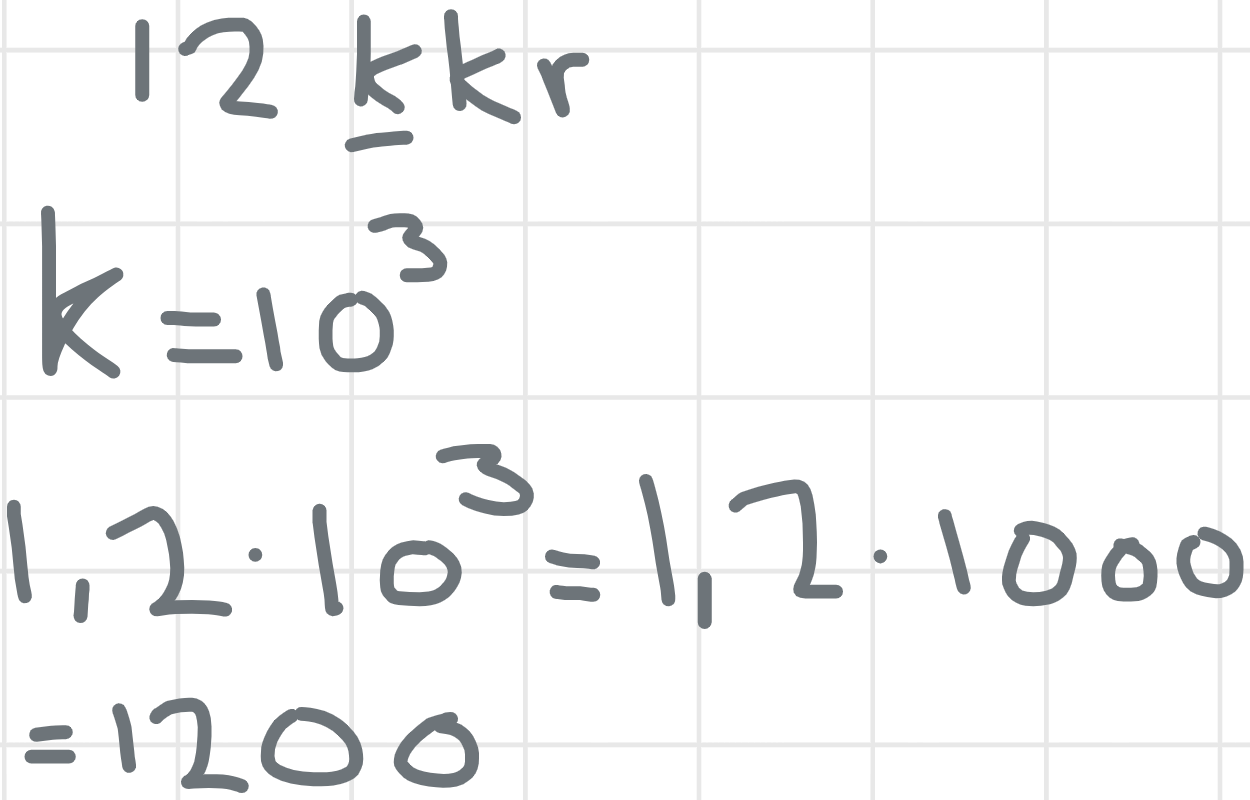 12 kkr
k = 10³
1,2 · 10³ = 1,2 · 1000
= 1200